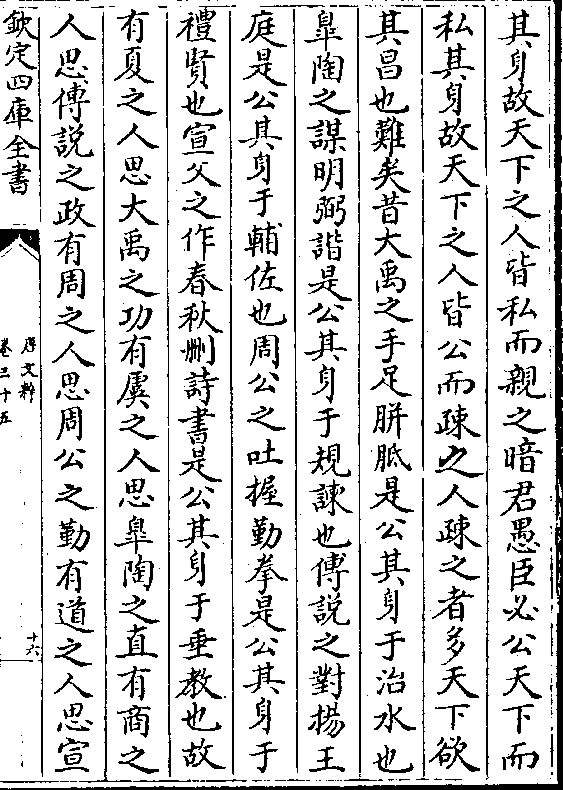 其身故天下之人皆私而親之暗君愚臣必公天下而
私其身故天下之人皆公而疎之人疎之者多天下欲
其昌也難矣昔大禹之手足胼胝是公其身于治水也
臯陶之謀明弼諧是公其身于規諫也傅說之對揚王
庭是公其身于輔佐也周公之吐握勤拳是公其身于
禮賢也宣父之作春秋刪詩書是公其身于垂教也故
有夏之人思大禹之功有虞之人思臯陶之直有商之
人思傅說之政有周之人思周公之勤有道之人思宣
欽定四庫全書
唐文粹
卷三十五
十六